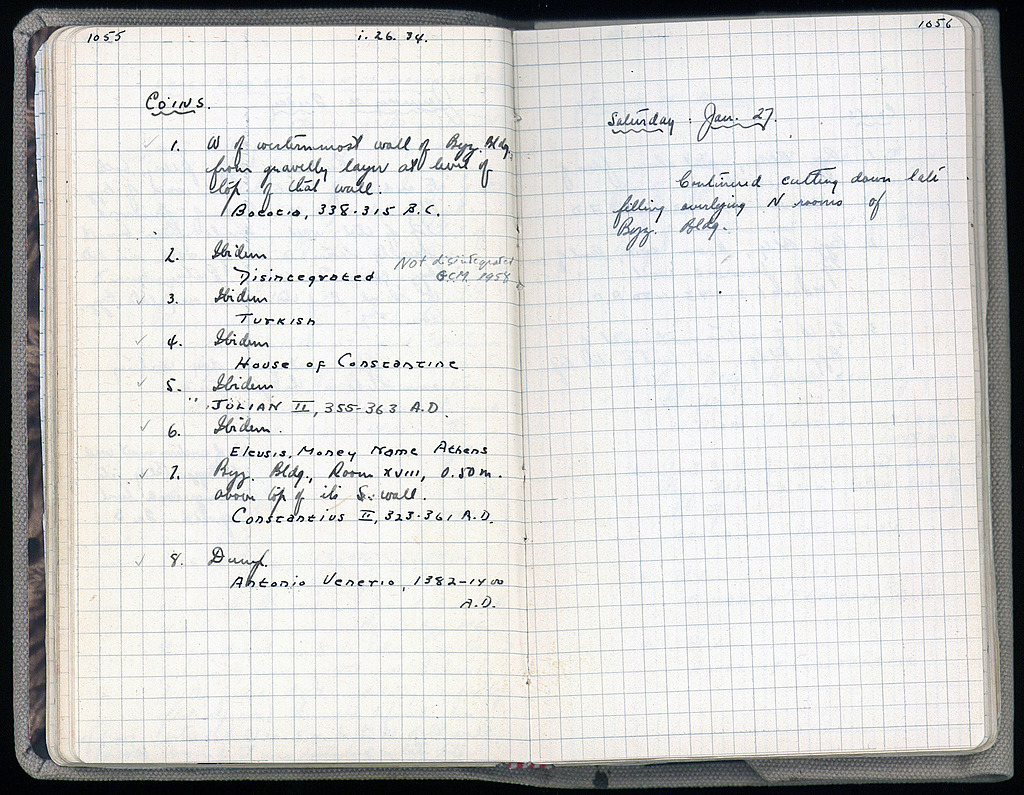 1055
i. 26. 34.
COINS.
1. W of westernmost wall of Byz. Bldg.
from gravelly layer at level of
top of that wall.
Boeotia, 338-315 B.C.
2. Ibidem
Disintegrated
Not disintegrated
G.C.M. 1954
3. Ibidem
Turkish
4. Ibidem
House of Constantine
5. Ibidem
JULIAN II, 355-363 A.D.
6. Ibidem.
Eleusis, Money Name Athens
7. Byz. Bldg., Room XVIII, 0.50 m.
above top of its S. wall.
Constantius II, 323-361 A.D.
8. Dump.
Antonio Venerio, 1382-1400
A.D.
1056
Saturday. Jan. 27.
Continued cutting down late
filling overlying N rooms of
Byz. Bldg.